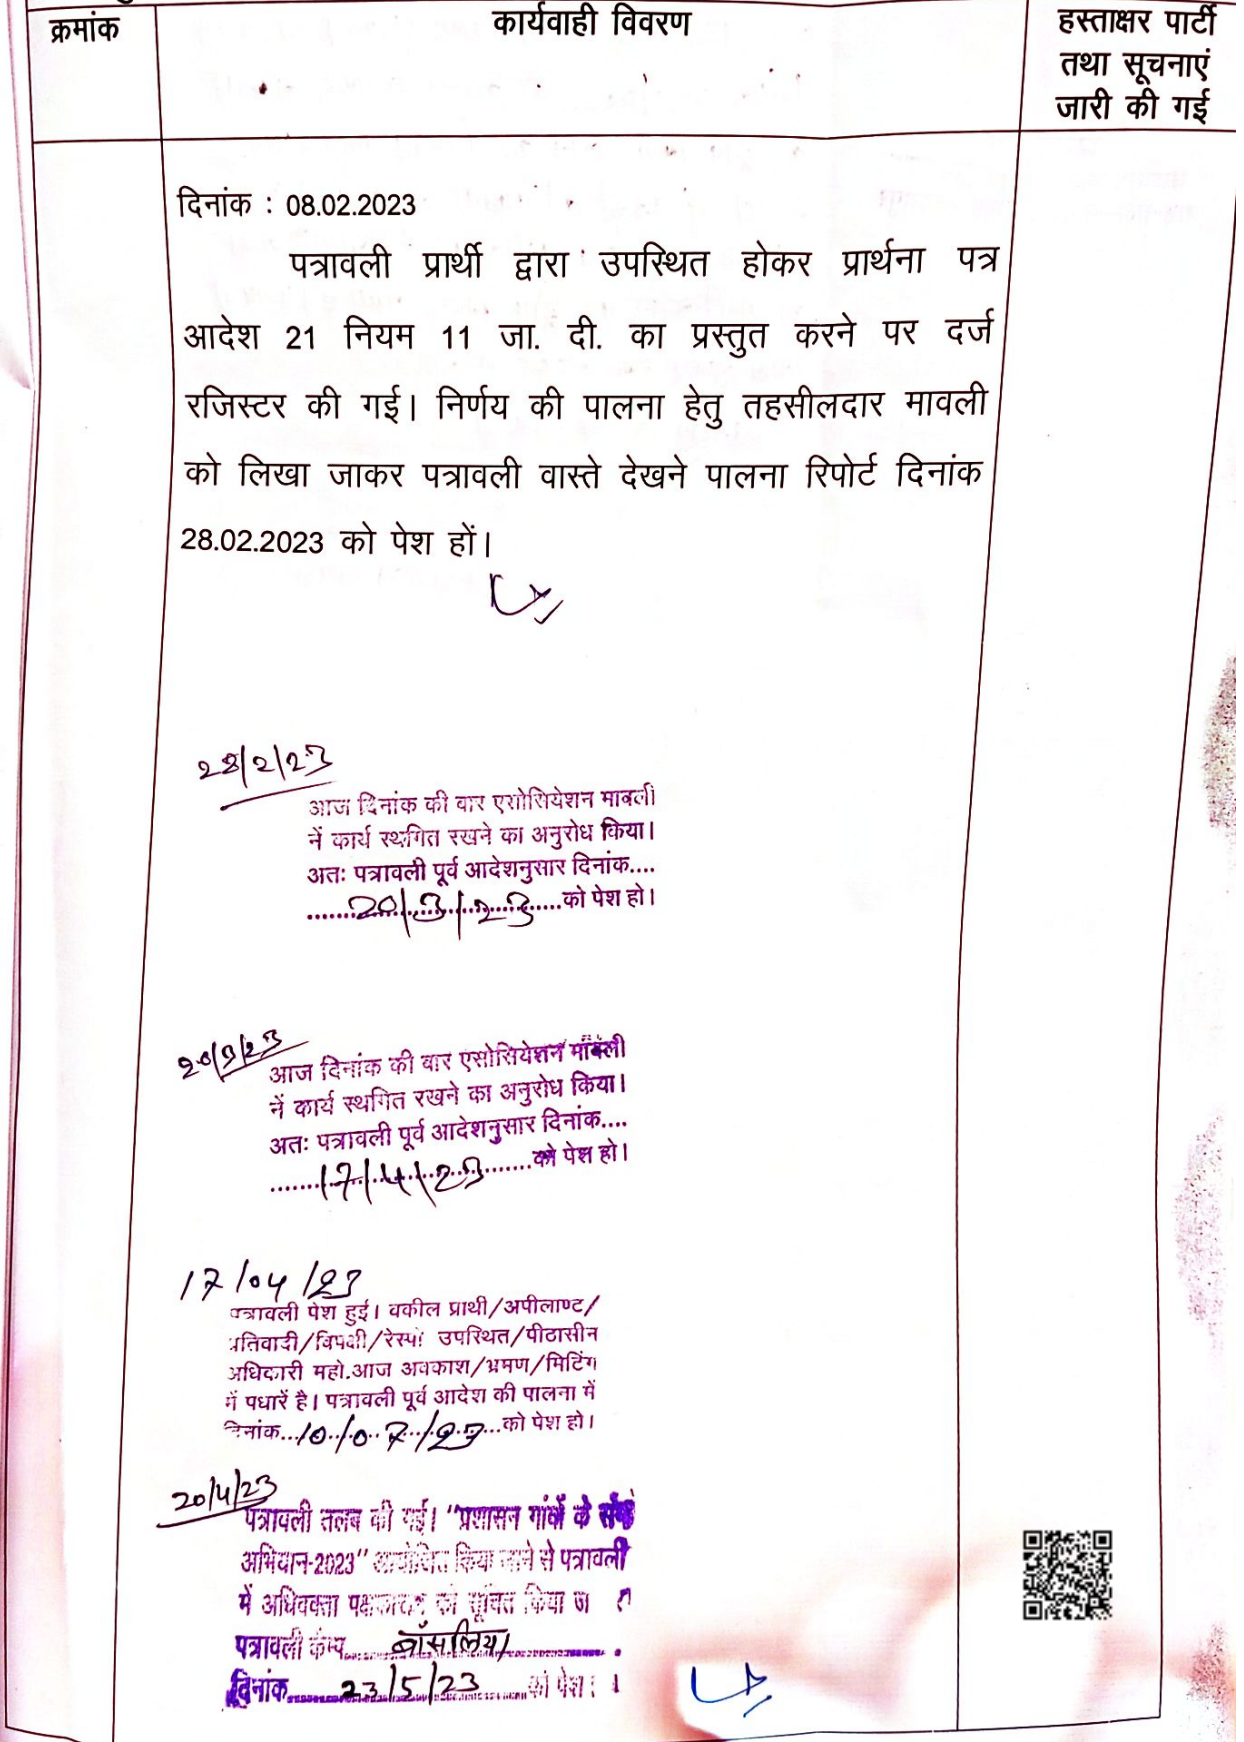 क्रमांक
कार्यवाही विवरण
हस्ताक्षर पार्टी
तथा सूचनाएं
जारी की गई
दिनांक : 08.02.2023
पत्रावली प्रार्थी द्वारा उपस्थित होकर प्रार्थना पत्र
आदेश 21 नियम 11 जा. दी. का प्रस्तुत करने पर दर्ज
रजिस्टर की गई। निर्णय की पालना हेतु तहसीलदार मावली
को लिखा जाकर पत्रावली वास्ते देखने पालना रिपोर्ट दिनांक
28.02.2023 को पेश हों।
28/2/23
आज दिनांक की बार एसोसियेशन मावली
नें कार्य स्थगित रखने का अनुरोध किया।
अतः पत्रावली पूर्व आदेशनुसार दिनांक....
20/3/23 को पेश हो।
20/3/23
आज दिनांक की बार एसोसियेशन मावली
नें कार्य स्थगित रखने का अनुरोध किया।
अतः पत्रावली पूर्व आदेशनुसार दिनांक....
17/4/23 को पेश हो।
17/04/23
पत्रावली पेश हुई। वकील प्रार्थी/अपीलाण्ट/
प्रतिवादी/विपक्षी/रेस्पो उपस्थित/पीठासीन
अधिकारी महो.आज अवकाश/भ्रमण/मिटिंग
में पधारें है। पत्रावली पूर्व आदेश की पालना में
दिनांक...10/07/23...को पेश हो।
20/4/23
पत्रावली तलब की गई। "प्रशासन गांवों के संग
अभियान-2023" आयोजित किया जाने से पत्रावली
में अधिवक्ता पक्षकारान को सूचित किया
पत्रावली कैम्प बाँसलिया
दिनांक 23/5/23 को पेश